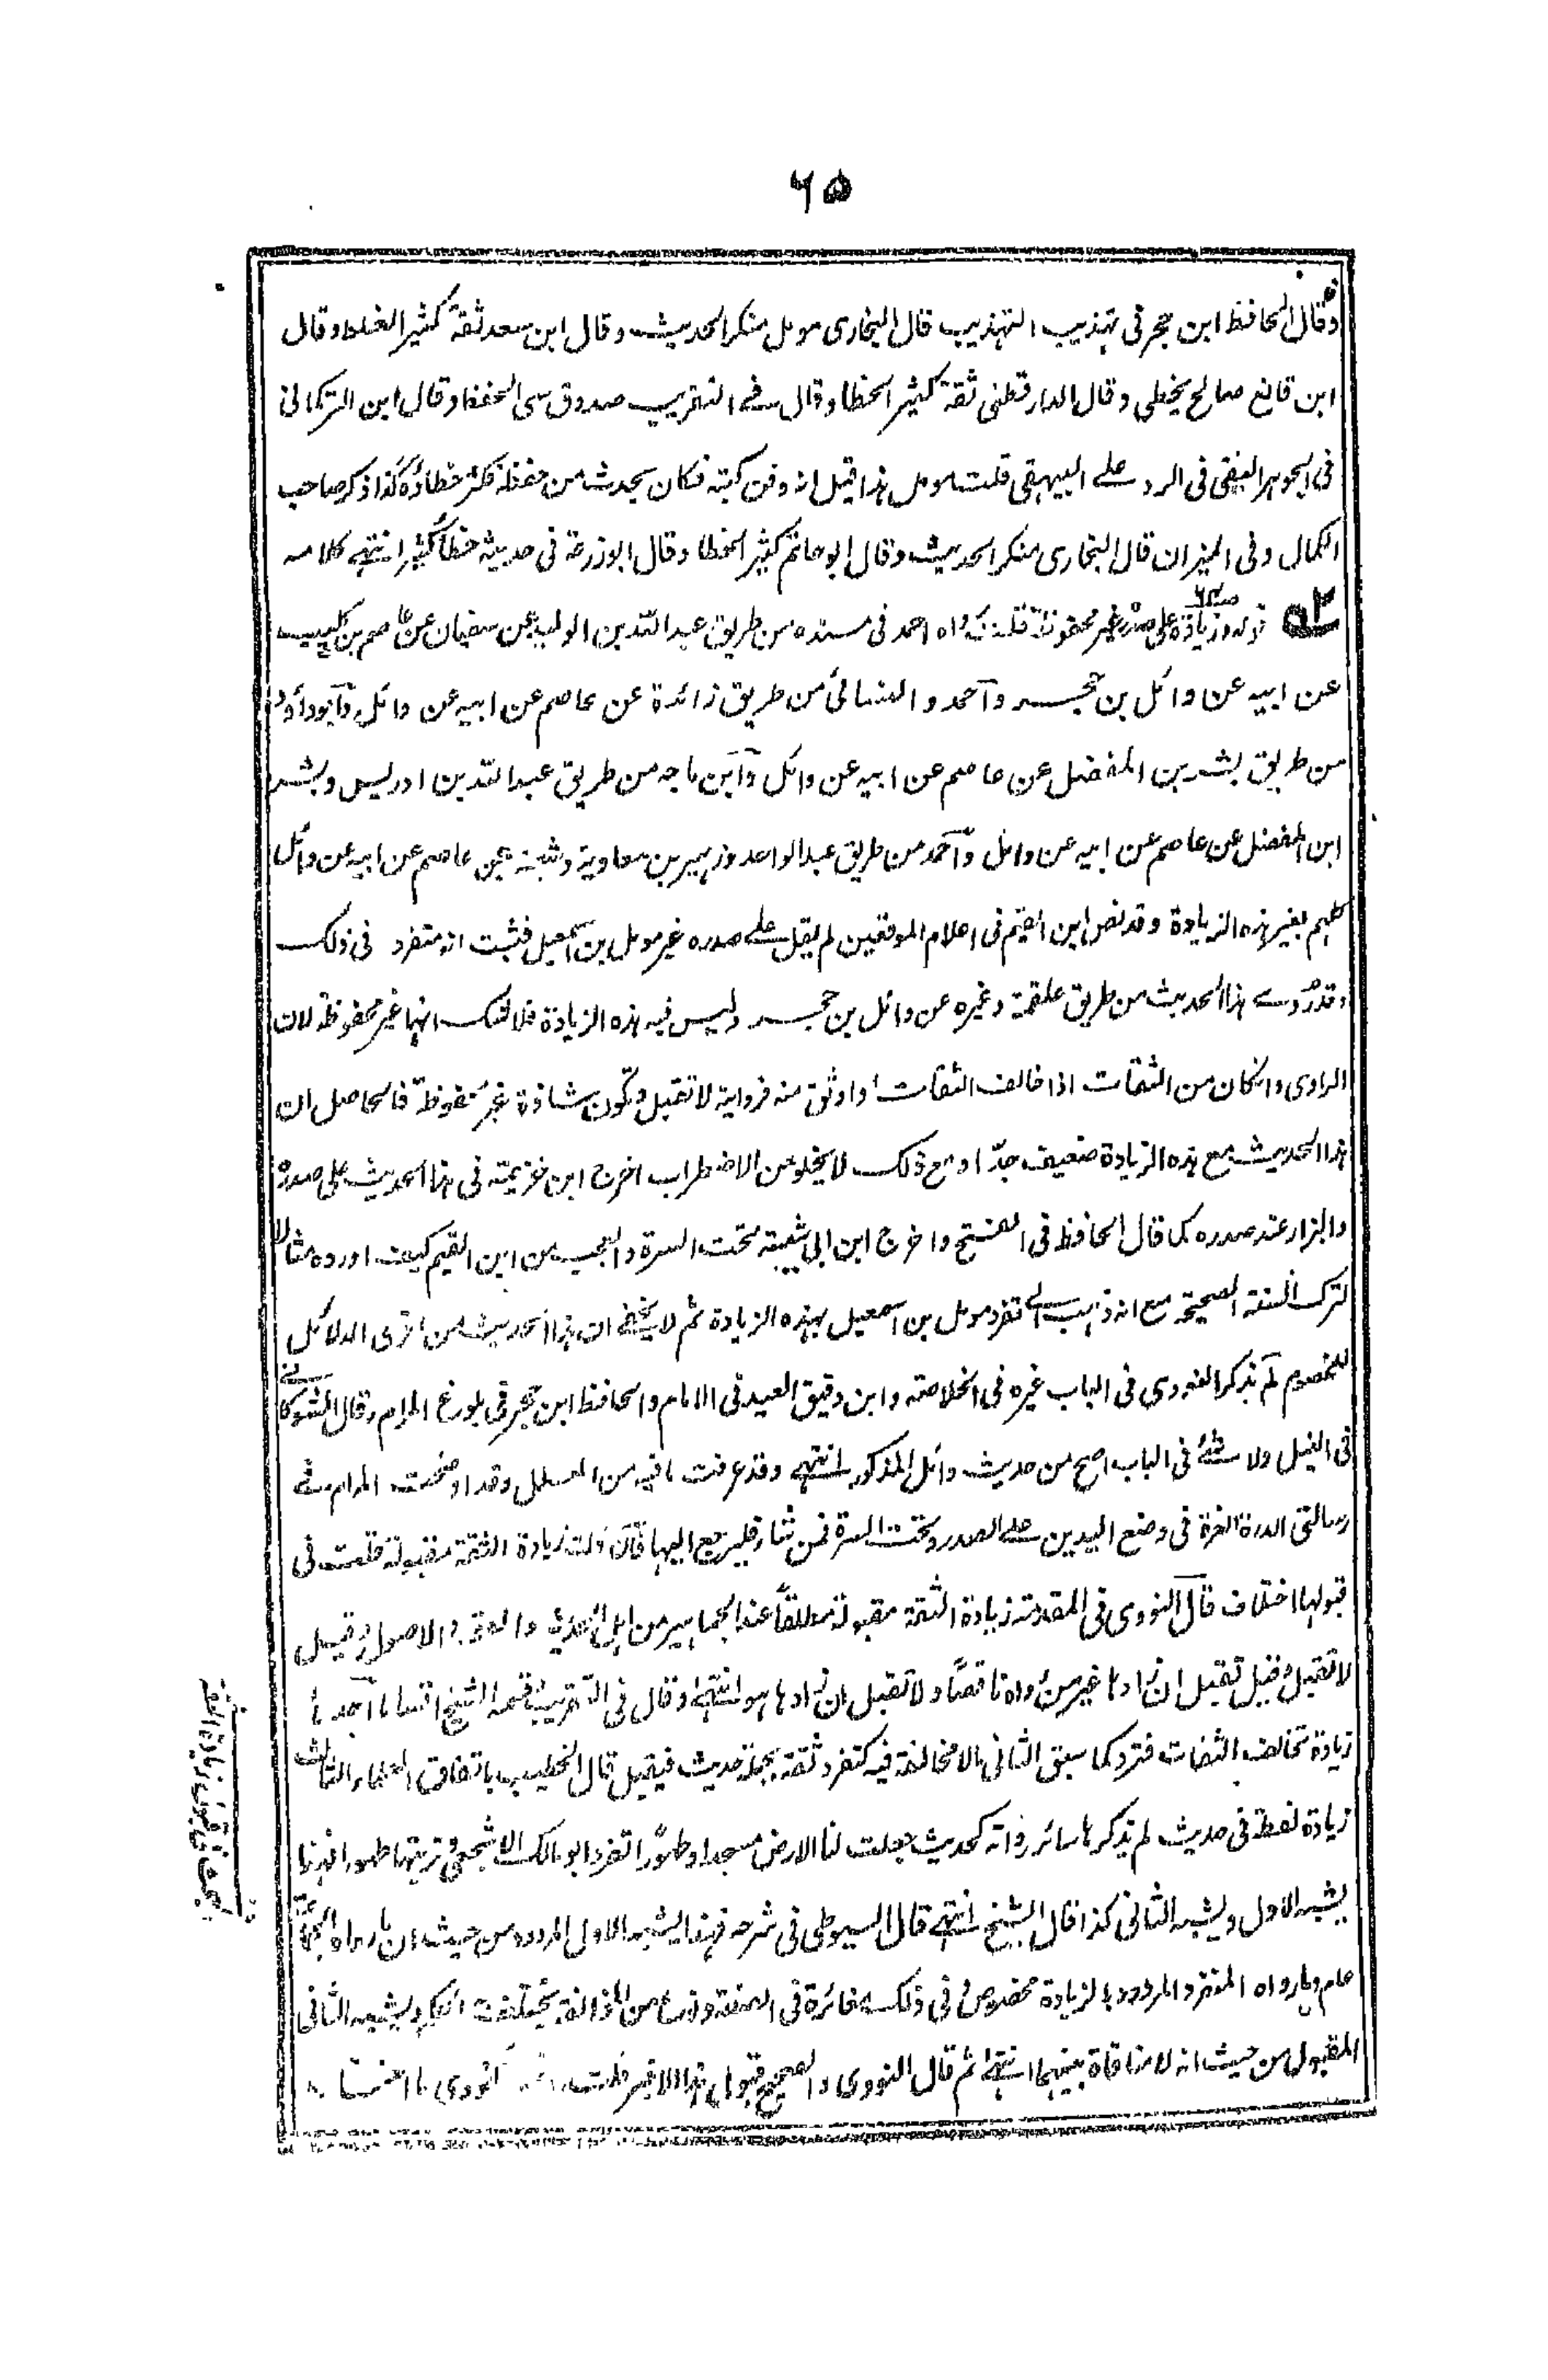 ٦٥
وقال الحافظ ابن حجر فی تهذیب التهذیب قال البخاری مومل منکر الحدیث وقال ابن سعد ثقة کثیر الغلط وقال
ابن قانع صالح یخطی وقال الدارقطنی ثقة کثیر الخطا وقال فی التقریب صدوق سی الحفظ وقال ابن الترکمانی
فی الجوهر النقی فی الرد علی البیهقی قلت مومل هذا قیل انه دفن کتبه فکان یحدث من حفظه فکثر خطاؤه کذا ذکر صاحب
الکمال وفی المیزان قال البخاری منکر الحدیث وقال ابو حاتم کثیر الخطا وقال ابو زرعة فی حدیثه خطأ کثیر انتهی کلامه
قوله وزیادة علی صدره غیر محفوظة قلت رواه احمد فی مسنده من طریق عبد الله بن الولید عن سفیان عن عاصم بن کلیب
عن ابیه عن وائل بن حجر واحمد والنسائی من طریق زائدة عن عاصم عن ابیه عن وائل وابوداؤد
من طریق بشر بن المفضل عن عاصم عن ابیه عن وائل وابن ماجه من طریق عبد الله بن ادریس وبشر
ابن المفضل عن عاصم عن ابیه عن وائل واحمد من طریق عبد الواحد وزهیر بن معاویة وشعبة عن عاصم عن ابیه عن وائل
کلهم بغیر هذه الزیادة وقد نص ابن القیم فی اعلام الموقعین لم یقل علی صدره غیر مومل بن اسمعیل فثبت انه متفرد فی ذلک
وقد روے هذا الحدیث من طریق علقمة وغیره عن وائل بن حجر ولیس فیه هذه الزیادة فلا شک انها غیر محفوظة لان
الراوی وان کان من الثقات اذا خالف الثقات او اوثق منه فروایته لا تقبل وتکون شاذة غیر محفوظة فالحاصل ان
هذا الحدیث مع هذه الزیادة ضعیف جدّا ومع ذلک لا یخلو عن الاضطراب اخرج ابن خزیمة فی هذا الحدیث علی صدره
والبزار عند صدره کما قال الحافظ فی الفتح واخرج ابن ابی شیبة تحت السرة والعجب من ابن القیم کیف اورده مثالا
لترک السنة الصحیحة مع انه ذهب الی تفرد مومل بن اسمعیل بهذه الزیادة ثم لا یخفی ان هذا الحدیث من اقوی الدلائل
للخصوم لم یذکر النووی فی الباب غیره فی الخلاصة وابن دقیق العید فی الامام والحافظ ابن حجر فی بلوغ المرام وقال الشوکانی
فی النیل ولا شیٔ فی الباب اصح من حدیث وائل المذکور انتهی وقد عرفت ما فیه من العلل وقد اوضحت المرام فی
رسالتی الدرة الغرة فی وضع الیدین علی الصدر وتحت السرة فمن شاء فلیرجع الیها فان قلت زیادة الثقة مقبولة قلت فی
قبولها اختلاف قال النووی فی المقدمة زیادة الثقة مقبولة مطلقاً عند الجماهیر من اهل الحدیث والفقه والاصول وقیل
لا تقبل وقیل تقبل ان زادها غیر من رواه ناقصاً ولا تقبل ان زادها هو انتهی وقال فی التقریب قسمه الشیخ اقساما احدها
زیادة تخالف الثقات فترد کما سبق الثانی ما لا مخالفة فیه کتفرد ثقة بجملة حدیث فیقبل قال الخطیب باتفاق العلماء الثالث
زیادة لفظة فی حدیث لم یذکرها سائر رواته کحدیث جعلت لنا الارض مسجدا وطهورًا تفرد ابو مالک الاشجعی وتربتها طهورا فهذا
یشبه الاول ویشبه الثانی کذا قال الشیخ انتهی قال السیوطی فی شرحه فهذا یشبه الاول المردود من حیث ان ما رواه الجماعة
عام وما رواه المنفرد المردود بالزیادة مخصوص وفی ذلک مغائرة فی الصفة ونوع من المخالفة یختلف الحکم ویشبه الثانی
المقبول من حیث انه لا منافاة بینهما انتهی ثم قال النووی والصحیح قبول هذا الاخیر قلت النووی